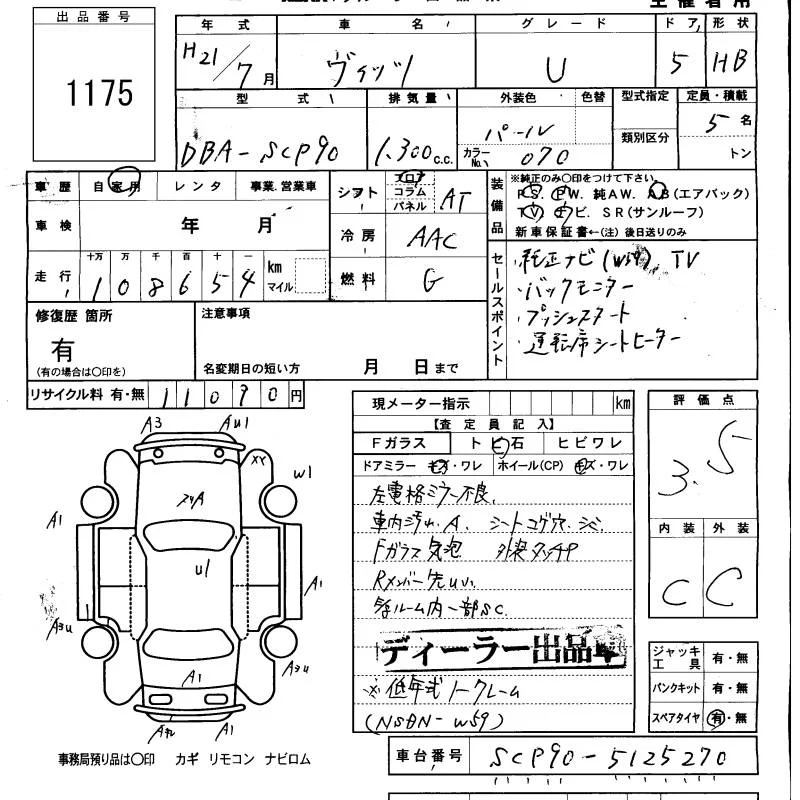 出品番号
1175
年式 車名 グレード ドア 形状
H21/7月 ヴィッツ U 5 HB
型式 排気量 外装色 色替 型式指定 定員・積載
DBA-SCP90 1.300c.c. パール カラーNo. 070 類別区分 5名 トン
車歴 自家用 レンタ 事業.営業車
車検 年 月
走行 十万 万 千 百 十 一 km マイル
108654
シフト フロア コラム パネル AT
冷房 AAC
燃料 G
装備品
※純正のみ〇印をつけて下さい。
P.S. P.W. 純AW. A.B(エアバック)
T.V ナビ. SR(サンルーフ)
新車保証書←(注) 後日送りのみ
セールスポイント
・純正ナビ(W59) TV
・バックモニター
・プッシュスタート
・運転席シートヒーター
修復歴 箇所
有
(有の場合は〇印を)
注意事項
名変期日の短い方 月 日まで
リサイクル料 有・無 11090円
現メーター指示 km
【査定員記入】
Fガラス トビ石 ヒビワレ
ドアミラー キズ・ワレ ホイール(CP) キズ・ワレ
左電格ミラー不良.
車内汚れ.A. シートコゲ穴.
Fガラス気泡 外装タッチP
Rメンバー先UV.
ルーム内一部SC.
ディーラー出品車
※低年式トークレーム
(NSDN-W59)
評価点
3.5
内装 外装
C C
ジャッキ 工具 有・無
パンクキット 有・無
スペアタイヤ 有・無
A3 AU1
XX
W1
A1
U1
A1
A3U
A3U
A1
A1
事務局預り品は〇印 カギ リモコン ナビロム
車台番号 SCP90-5125270